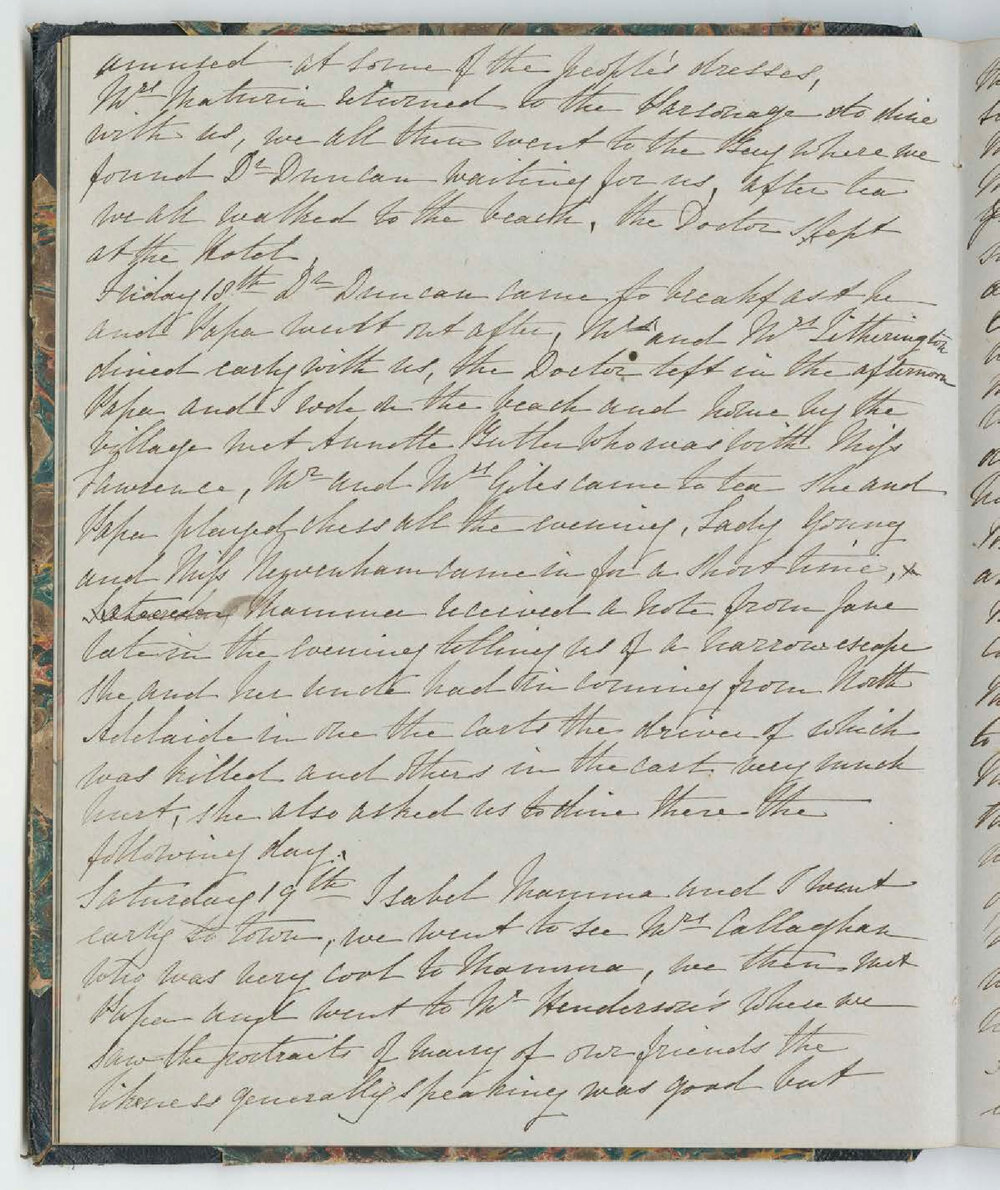 amused at some of the people's dresses,
Mrs Maturin returned to the Parsonage to dine
with us, we all then went to the Bay where we
found Dr Duncan waiting for us, after tea
we all walked to the beach, the Doctor slept
at the Hotel,
Friday 18th Dr Duncan came to breakfast he
and Papa went out after, Mr and Mrs Titherington
dined early with us, the Doctor left in the afternoon
Papa and I rode on the beach and home by the
village met Annette Butler who was with Miss
Lawrence, Mr and Mrs Giles came to tea she and
Papa played chess all the evening, Lady Young
and Miss Newenham came in for a short time,
Mamma received a note from Jane
late in the evening telling us of a narrow escape
she and her uncle had in coming from North
Adelaide in one the carts the driver of which
was killed and others in the cart very much
hurt, she also asked us to dine there the
following day.
Saturday 19th Isabel Mamma and I went
early to town, we went to see Mrs Callaghan
who was very cool to Mamma, we then met
Papa and went to Mr Henderson's where we
saw the portraits of many of our friends the
likness generally speaking was good but